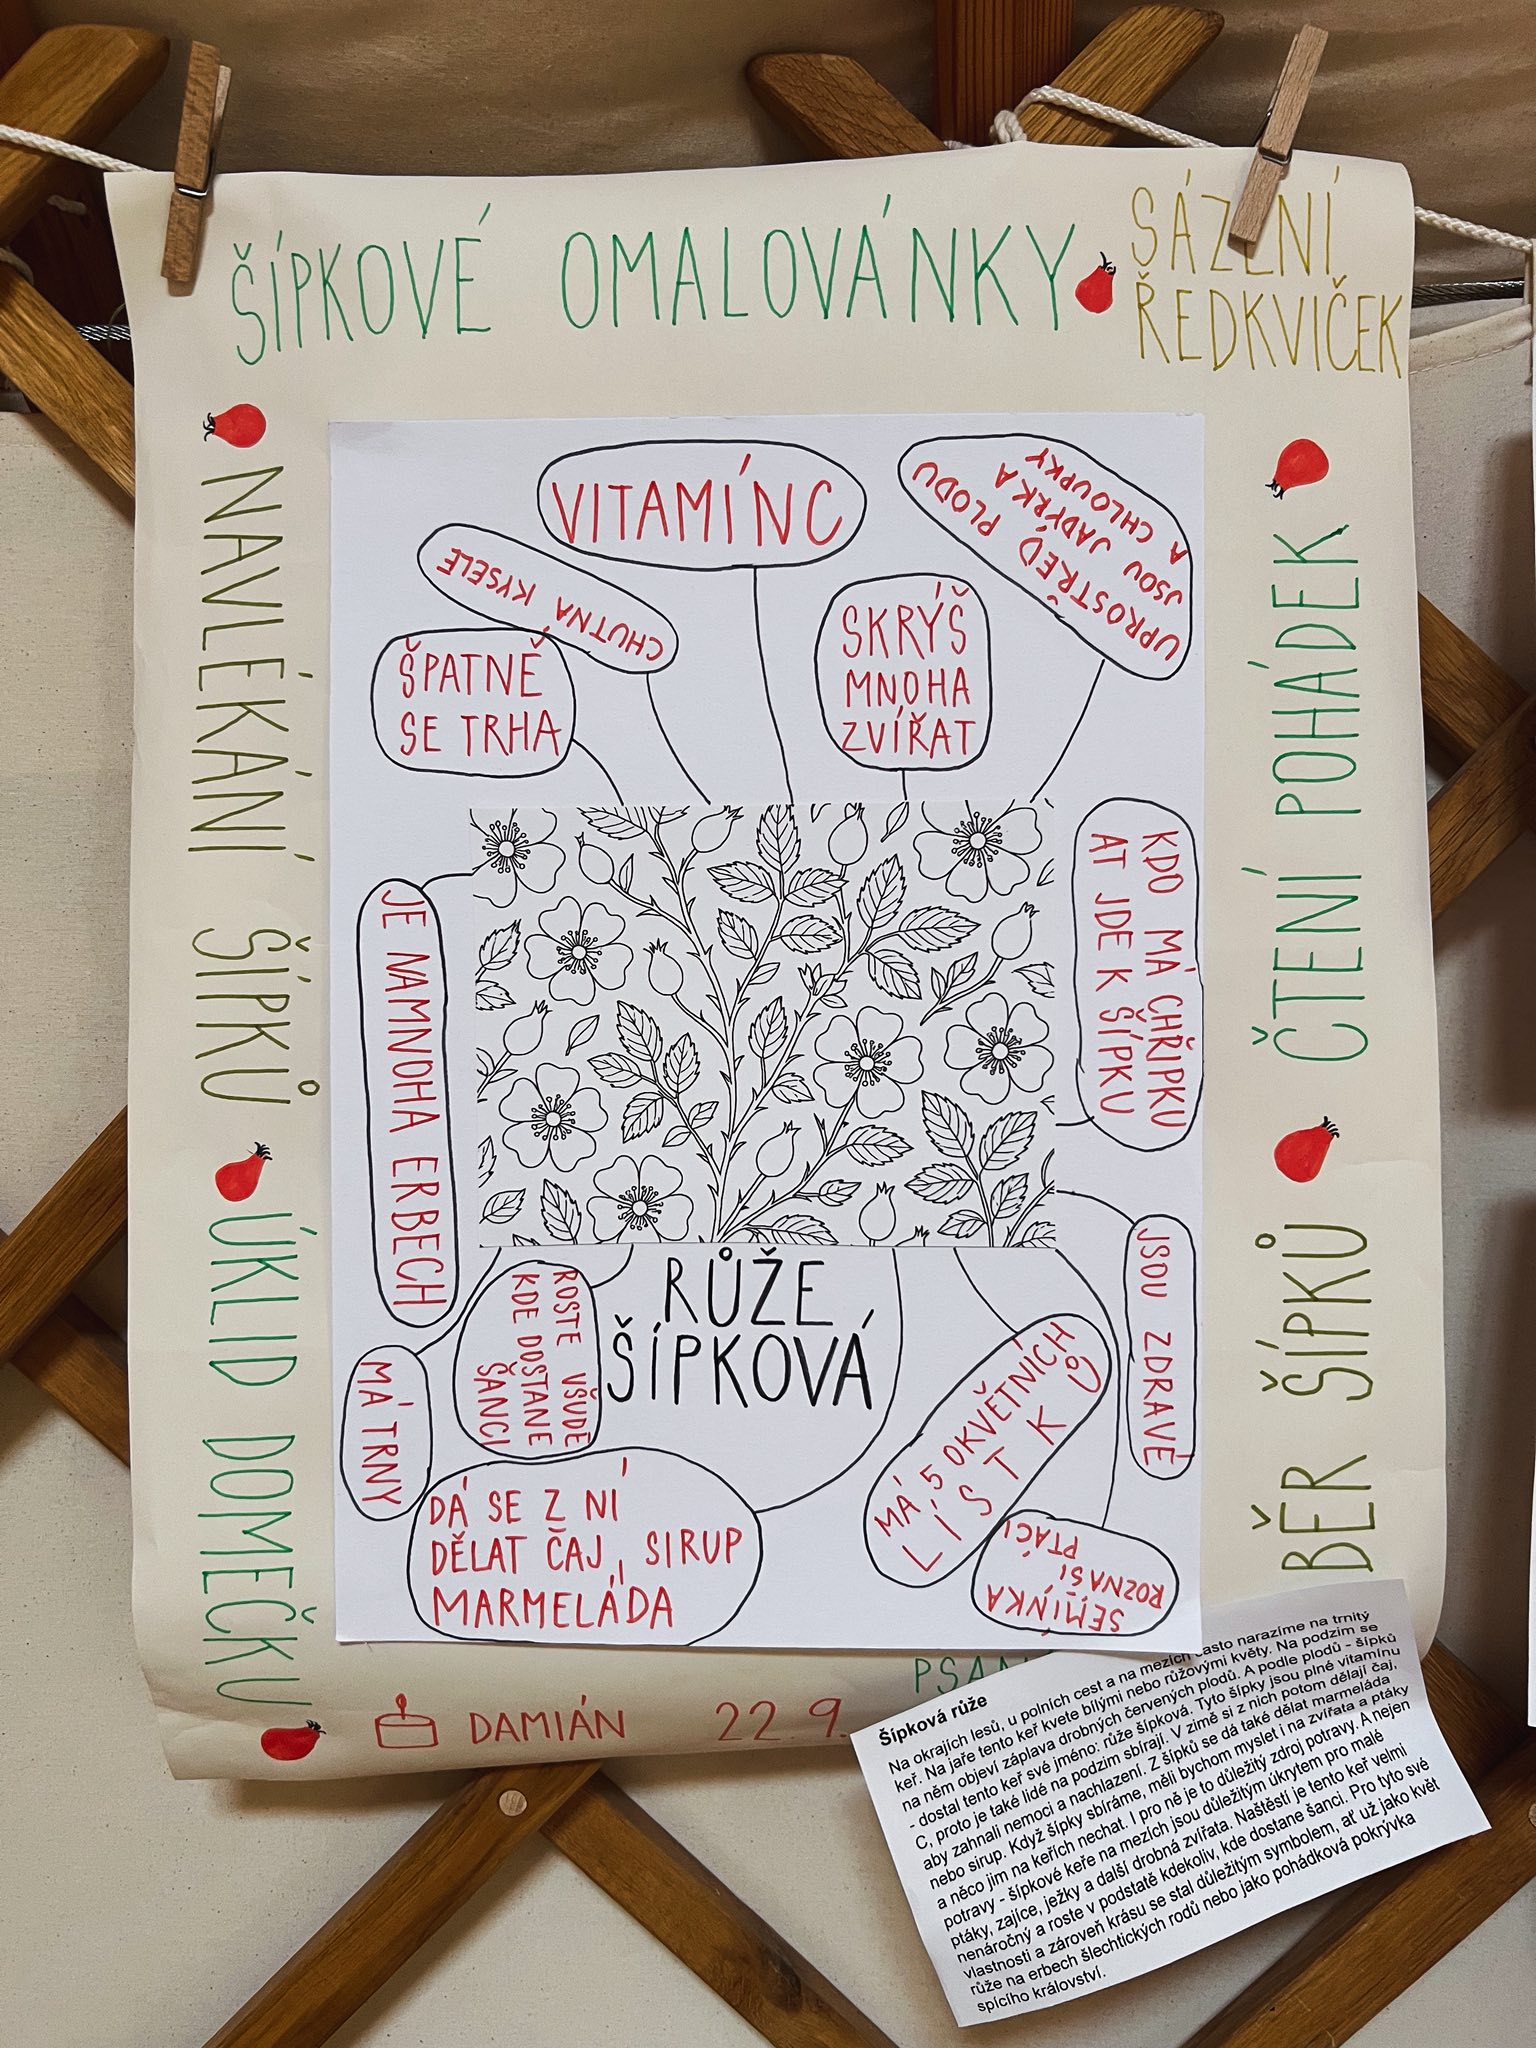 ŠÍPKOVÉ OMALOVÁNKY
SÁZENÍ
ŘEDKVIČEK
NAVLÉKÁNÍ ŠÍPKŮ
ÚKLID DOMEČKU
ČTENÍ POHÁDEK
BĚR ŠÍPKŮ
VITAMÍN C
CHUTNÁ KYSELE
ŠPATNĚ
SE TRHA
SKRÝŠ
MNOHA
ZVÍŘAT
UPROSTŘED PLODU
JSOU JADÝRKA
A CHLOUPKY
KDO MÁ CHŘIPKU
AT JDE K ŠÍPKU
JE NAMNOHA ERBECH
MÁ TRNY
ROSTE VŠUDĚ
KDE DOSTANE
ŠANCI
RŮŽE
ŠÍPKOVÁ
JSOU ZDRAVÉ
MÁ 5 OKVĚTNÍCH
LÍSTKŮ
SEMÍNKA
ROZNAŠÍ
PTÁCI
DÁ SE Z NÍ
DĚLAT ČAJ, SIRUP
MARMELÁDA
DAMIÁN 22. 9.
Šípková růže
Na okrajích lesů, u polních cest a na mezích často narazíme na trnitý
keř. Na jaře tento keř kvete bílými nebo růžovými květy. Na podzim se
na něm objeví záplava drobných červených plodů. A podle plodů - šípků
- dostal tento keř své jméno: růže šípková. Tyto šípky jsou plné vitamínu
C, proto je také lidé na podzim sbírají. V zimě si z nich potom dělají čaj,
aby zahnali nemoci a nachlazení. Z šípků se dá také dělat marmeláda
nebo sirup. Když šípky sbíráme, měli bychom myslet i na zvířata a ptáky
a něco jim na keřích nechat. I pro ně je to důležitý zdroj potravy. A nejen
potravy - šípkové keře na mezích jsou důležitým úkrytem pro malé
ptáky, zajíce, ježky a další drobná zvířata. Naštěstí je tento keř velmi
nenáročný a roste v podstatě kdekoliv, kde dostane šanci. Pro tyto své
vlastnosti a zároveň krásu se stal důležitým symbolem, ať už jako květ
růže na erbech šlechtických rodů nebo jako pohádková pokrývka
spícího království.